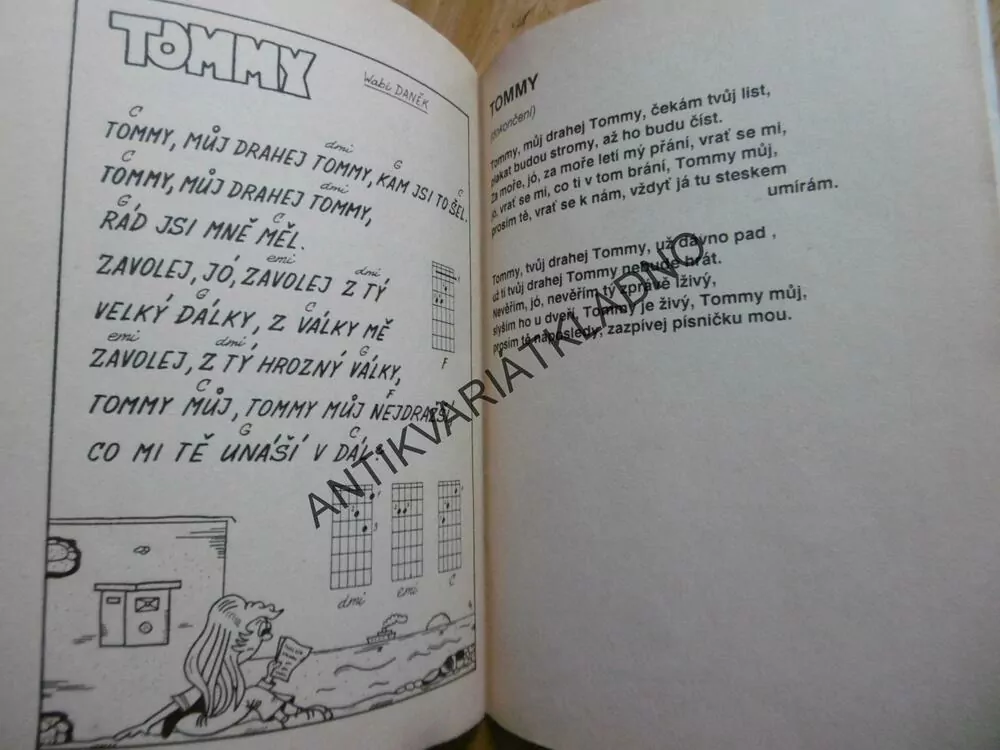 TOMMY
Wabi DANĚK
C
TOMMY, MŮJ DRAHEJ TOMMY, KAM JSI TO ŠEL.
dmi G C
C dmi
TOMMY, MŮJ DRAHEJ TOMMY,
G C
RÁD JSI MNĚ MĚL.
emi dmi
ZAVOLEJ, JÓ, ZAVOLEJ Z TÝ
G C
VELKÝ DÁLKY, Z VÁLKY MĚ
emi dmi G
ZAVOLEJ, Z TÝ HROZNÝ VÁLKY,
C F
TOMMY MŮJ, TOMMY MŮJ
G C
CO MI TĚ UNÁŠÍ V
F
dmi
emi
C
TOMMY
(dokončení)
Tommy, můj drahej Tommy, čekám tvůj list,
plakat budou stromy, až ho budu číst.
Za moře, jó, za moře letí mý přání, vrať se mi,
jó, vrať se mi, co ti v tom brání, Tommy můj,
prosím tě, vrať se k nám, vždyť já tu steskem
umírám.
Tommy, tvůj drahej Tommy, už dávno pad ,
už ti tvůj drahej Tommy nebude hrát.
Nevěřím, jó, nevěřím tý zprávě lživý,
slyším ho u dveří, Tommy je živý, Tommy můj,
prosím tě naposledy, zazpívej písničku mou.
ANTIKVARIATKLADNO